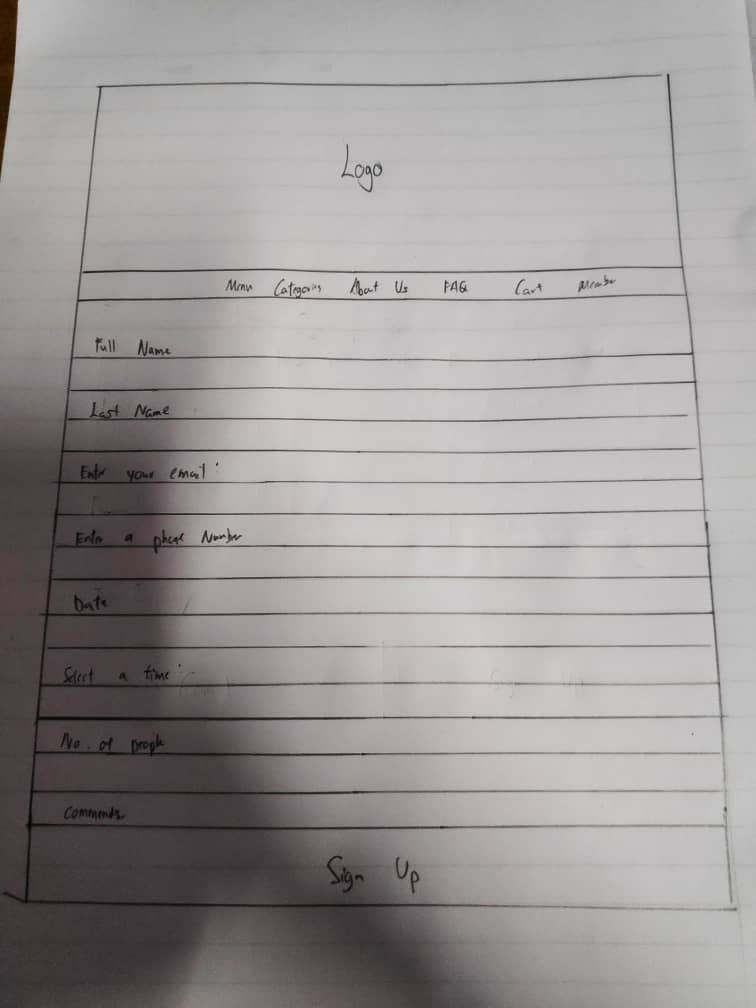 Logo
Menu Categories About Us FAQ Cart Member
Full Name
Last Name
Enter your email :
Enter a phone Number
Date
Select a time :
No. of people
Comments
Sign Up